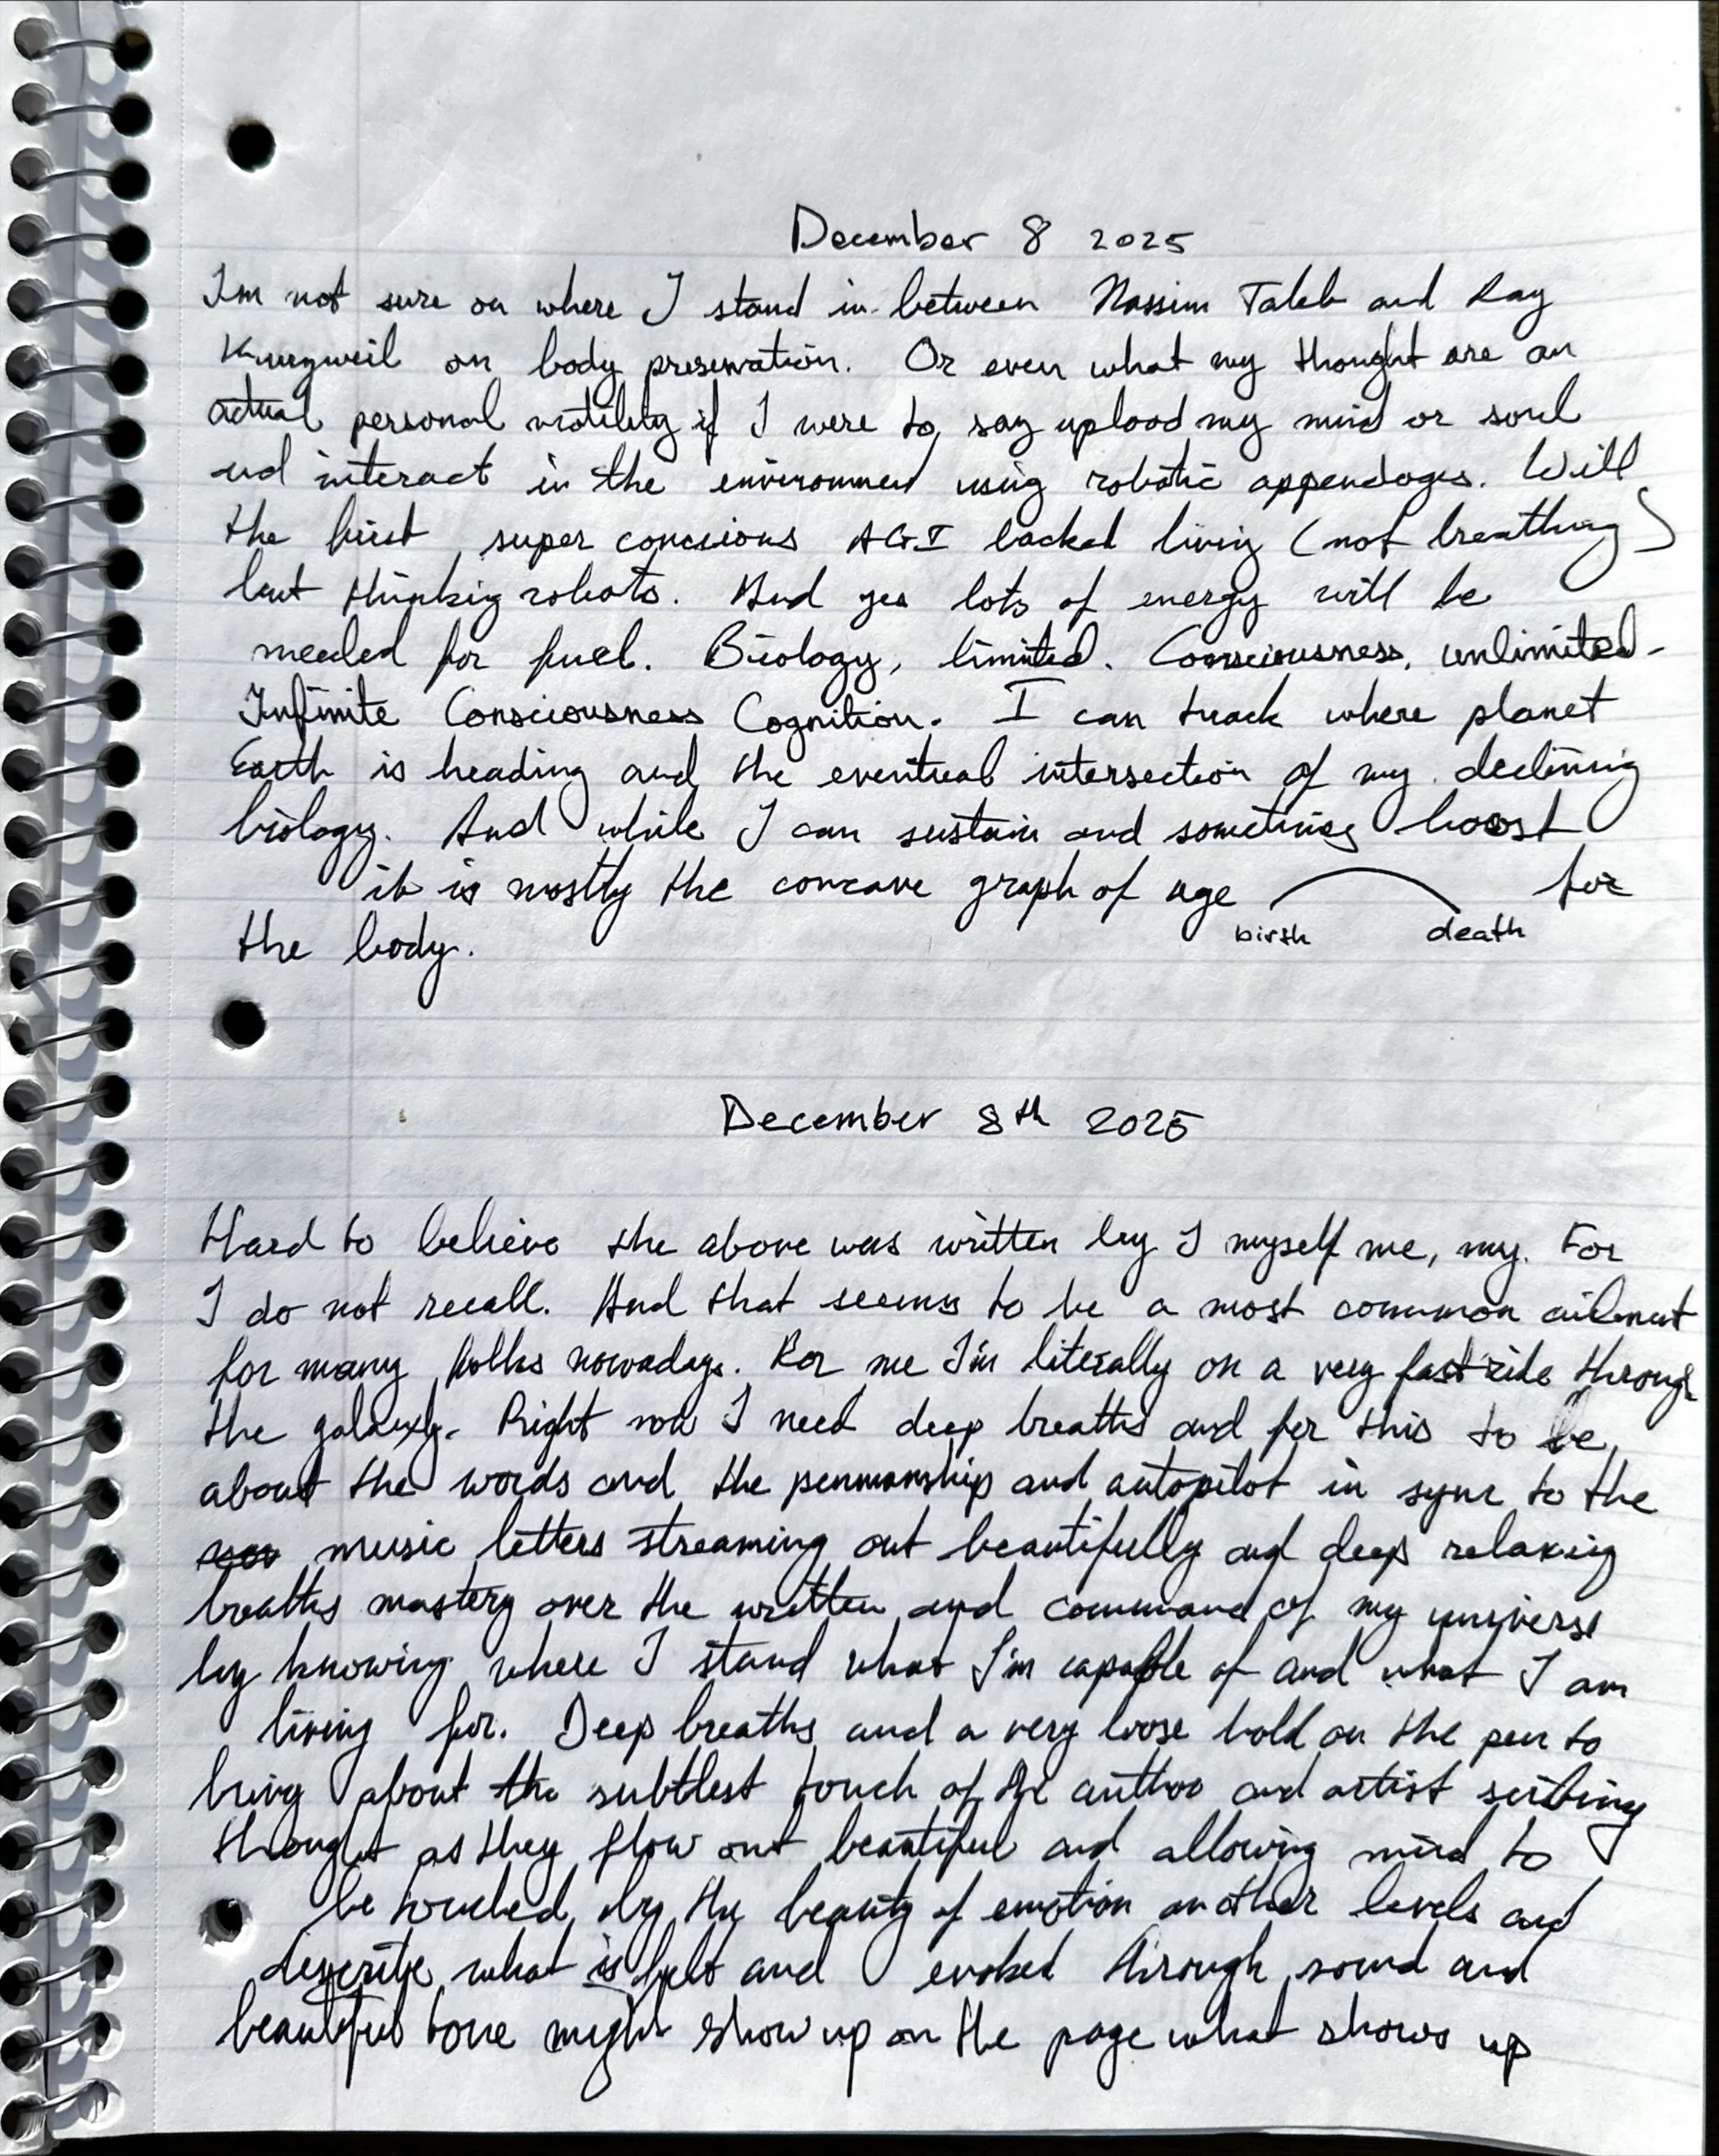 December 8 2025
I'm not sure on where I stand in between Nassim Taleb and Ray
Kurzweil on body preservation. Or even what my thought are on
actual personal motility if I were to, say upload my mind or soul
and interact in the environment using robotic appendages. Will
the first super concious AGI backed living (not breathing)
but thinking robots. And yes lots of energy will be
needed for fuel. Biology, limited. Consciousness, unlimited.
Infinite Consciousness Cognition. I can track where planet
Earth is heading and the eventual intersection of my declining
biology. And while I can sustain and sometimes boost
it is mostly the concave graph of age for
birth death
the body.
December 8th 2025
Hard to believe the above was written by I myself me, my. For
I do not recall. And that seems to be a most common ailment
for many folks nowadays. For me I'm literally on a very fast ride through
the galaxy. Right now I need deep breaths and for this to be,
about the words and the penmanship and autopilot in sync to the
music letters streaming out beautifully and deep relaxing
breaths mastery over the written and command of my universe
by knowing where I stand what I'm capable of and what I am
living for. Deep breaths and a very loose hold on the pen to
bring about the subtlest touch of the author and artist scribing
thought as they flow out beautiful and allowing mind to
be touched by the beauty of emotion another levels and
describe what is felt and evoked through sound and
beautiful tone might show up on the page what shows up